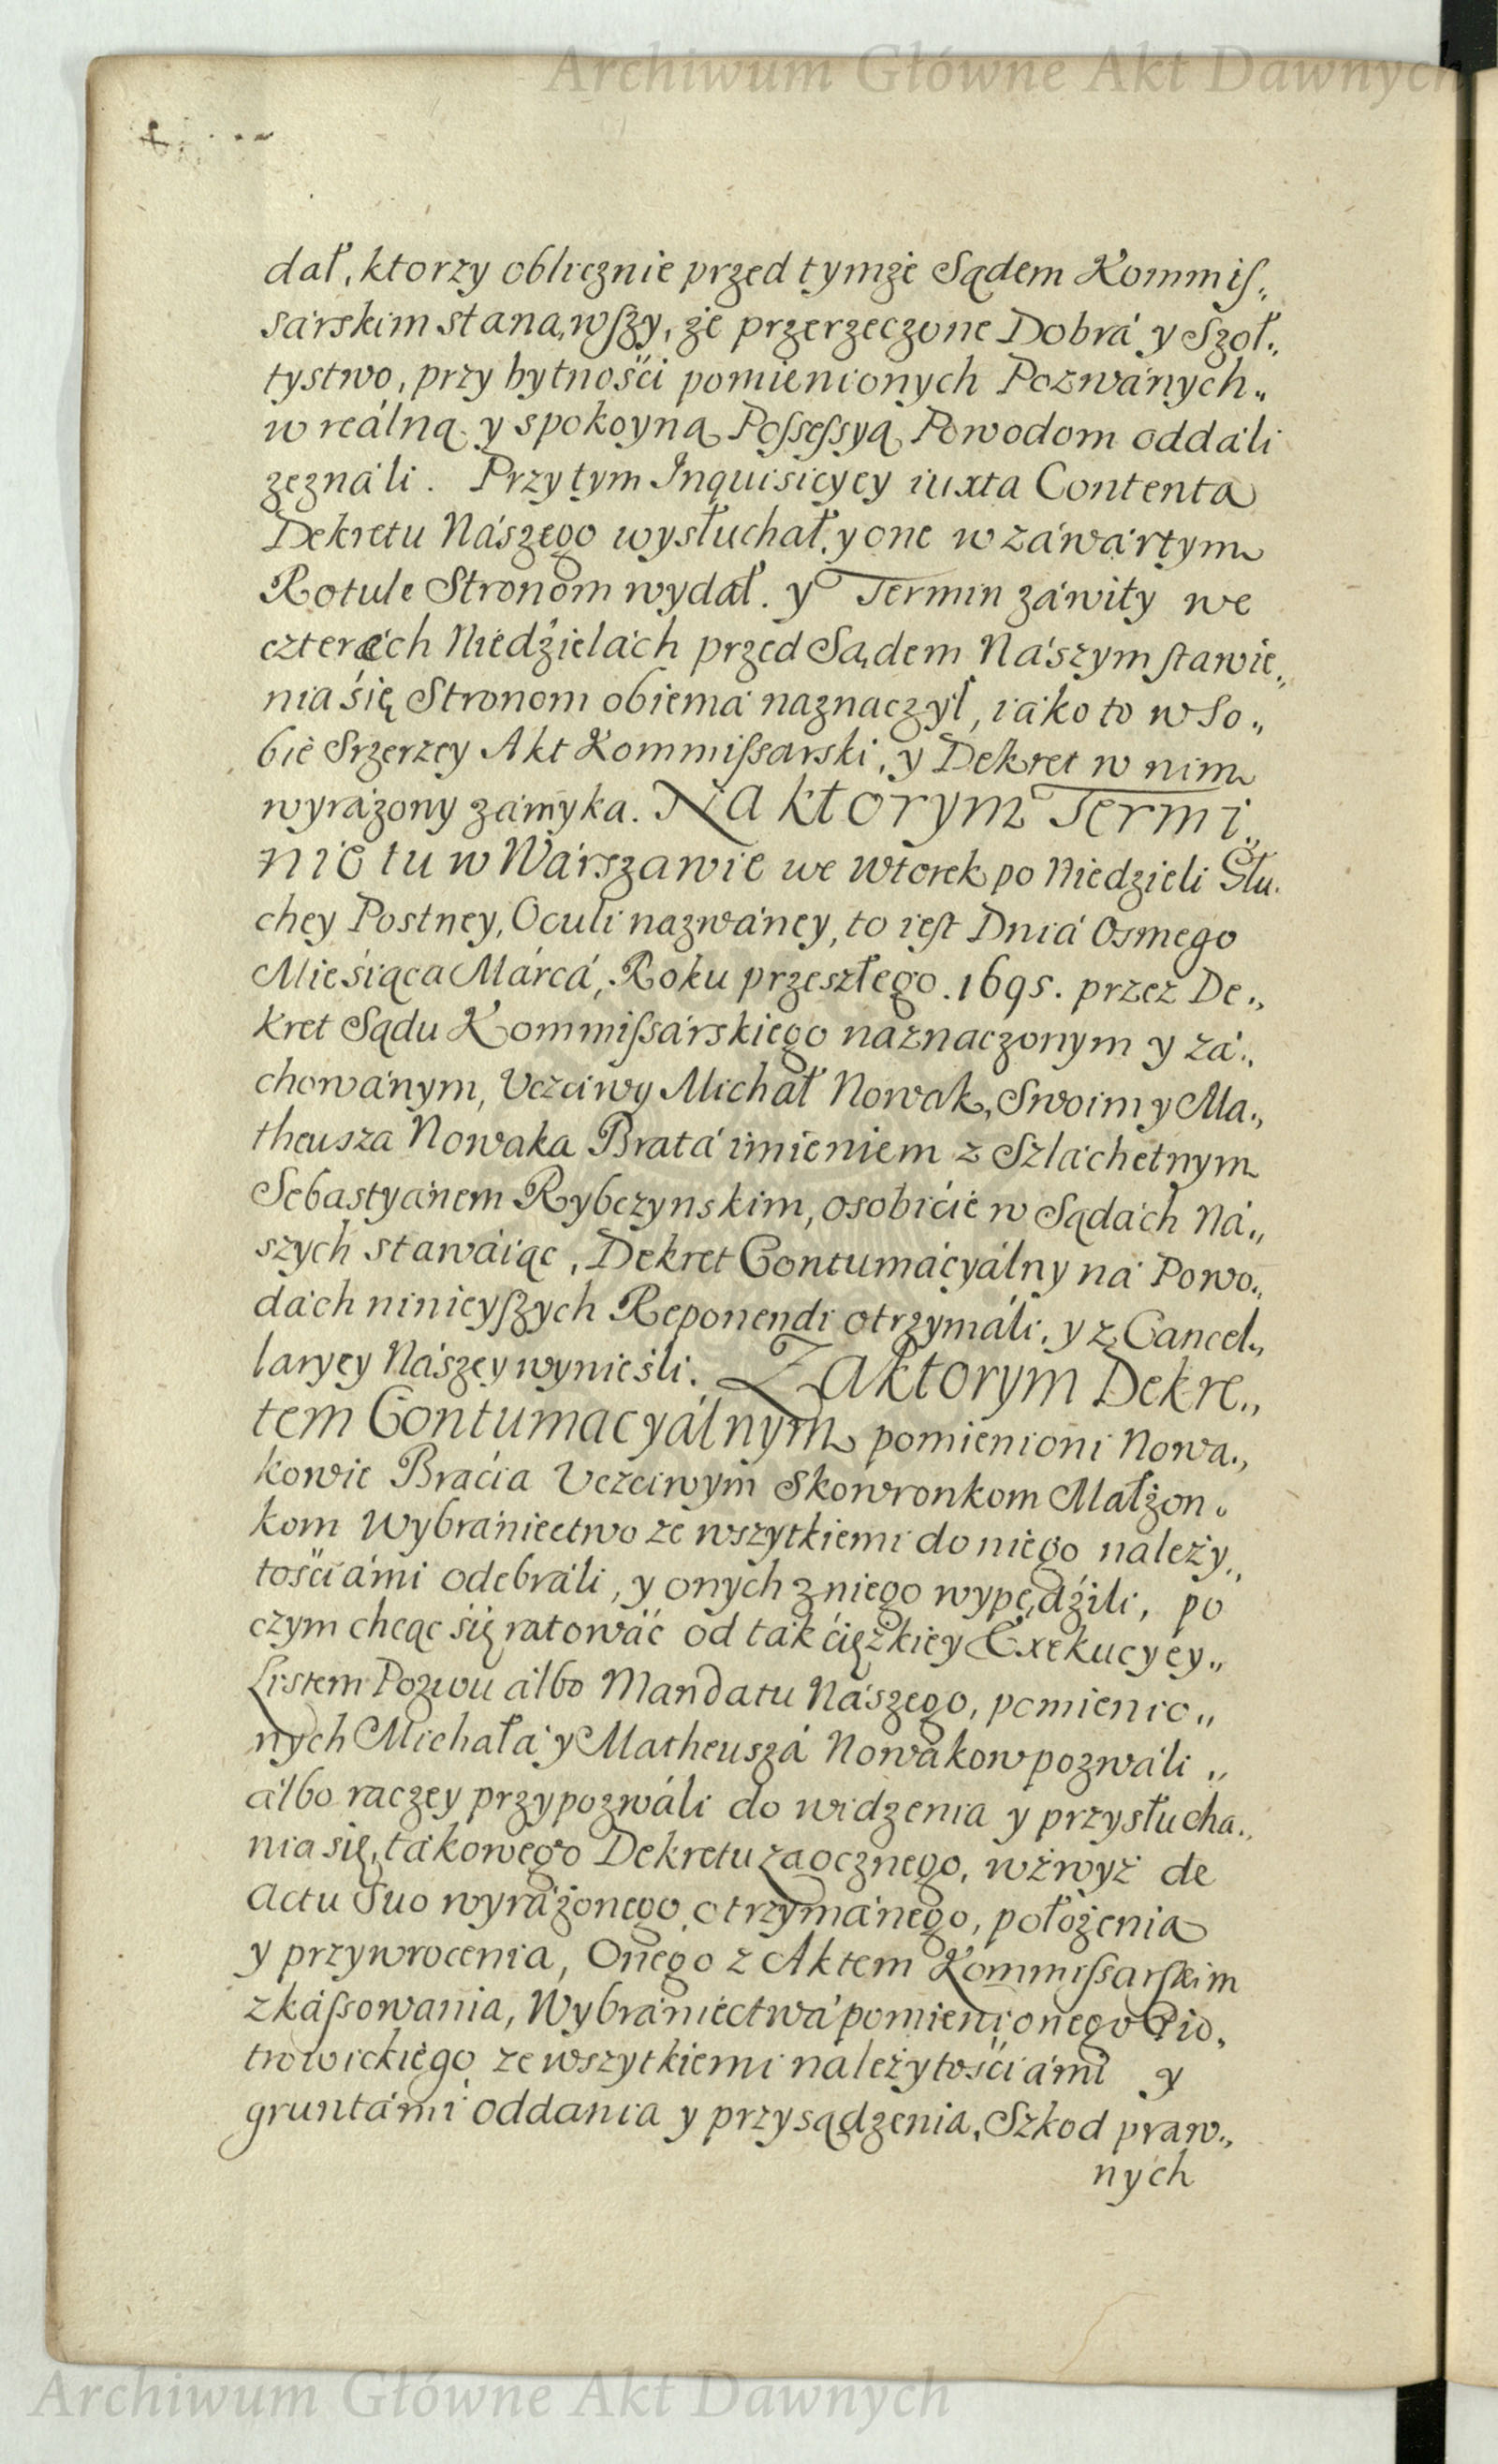 Archiwum Główne Akt Dawnych
dał, ktorzy oblicznie przed tymże Sądem Kommis„
sárskim stanąwszy, że przerzeczone Dobrá y Szoł„
tystwo, przy bytnośći pomienionych Pozwánych„
w reálną y spokoyną Possessyą Powodom oddáli
zeználi. Przytym Inquisicyey iuxta Contenta
Dekretu Nászego wysłuchał, y one w záwártym
Rotule Stronom wydał. y Termin záwity we
czterech Niedźielách przed Sądem Nászym stawie„
nia się Stronom obiemá náznaczył, iáko to w So„
bie Srzerzey Akt Kommissarski, y Dekret w nim
wyráżony zámyka. Na ktorym Termi„
nie tu w Wárszawie we Wtorek po Niedzieli Głu„
chey Postney, Oculi názwáney, to iest Dniá Osmego
Mieśiąca Márcá, Roku przeszłego. 1695. przez De„
kret Sądu Kommissárskiego náznaczonym y zá„
chowánym, Uczciwy Michał Nowak, Swoim y Ma„
theusza Nowaka Bratá imieniem z Szláchetnym
Sebastyánem Rybczynskim, osobiście w Sądách Ná„
szych stawáiąc, Dekret Contumácyálny ná Powo„
dách ninieyszych Reponendi otrzymáli, y z Cancel„
laryey Nászey wynieśli. Zaktorym Dekre„
tem Contumacyálnym pomienioni Nowa„
kowie Bráćia Uczciwym Skowronkom Małżon„
kom Wybrániectwo ze wszytkiemi do niego należy„
tośćiámi odebráli, y onych z niego wypędźili, po
czym chcąc się ratowáć od ták ćięzkiey Exekucyey„
Listem Pozwu álbo Mandatu Nászego, pomienio„
nych Michałá y Matheuszá Nowakow pozwáli„
álbo raczey przypozwáli do widzenia y przysłucha„
nia się, tákowego Dekretu záocznego, wzwyż de
Actu Suo wyráżonego otrzymánego, położenia
y przywrocenia, Onego z Aktem Kommissarskim
zkássowania, Wybrániectwá pomienionego Pio„
trowickiego ze wszytkiemi należytośćiámi y
gruntámi oddania y przysądzenia, Szkod praw„
nych
Archiwum Główne Akt Dawnych